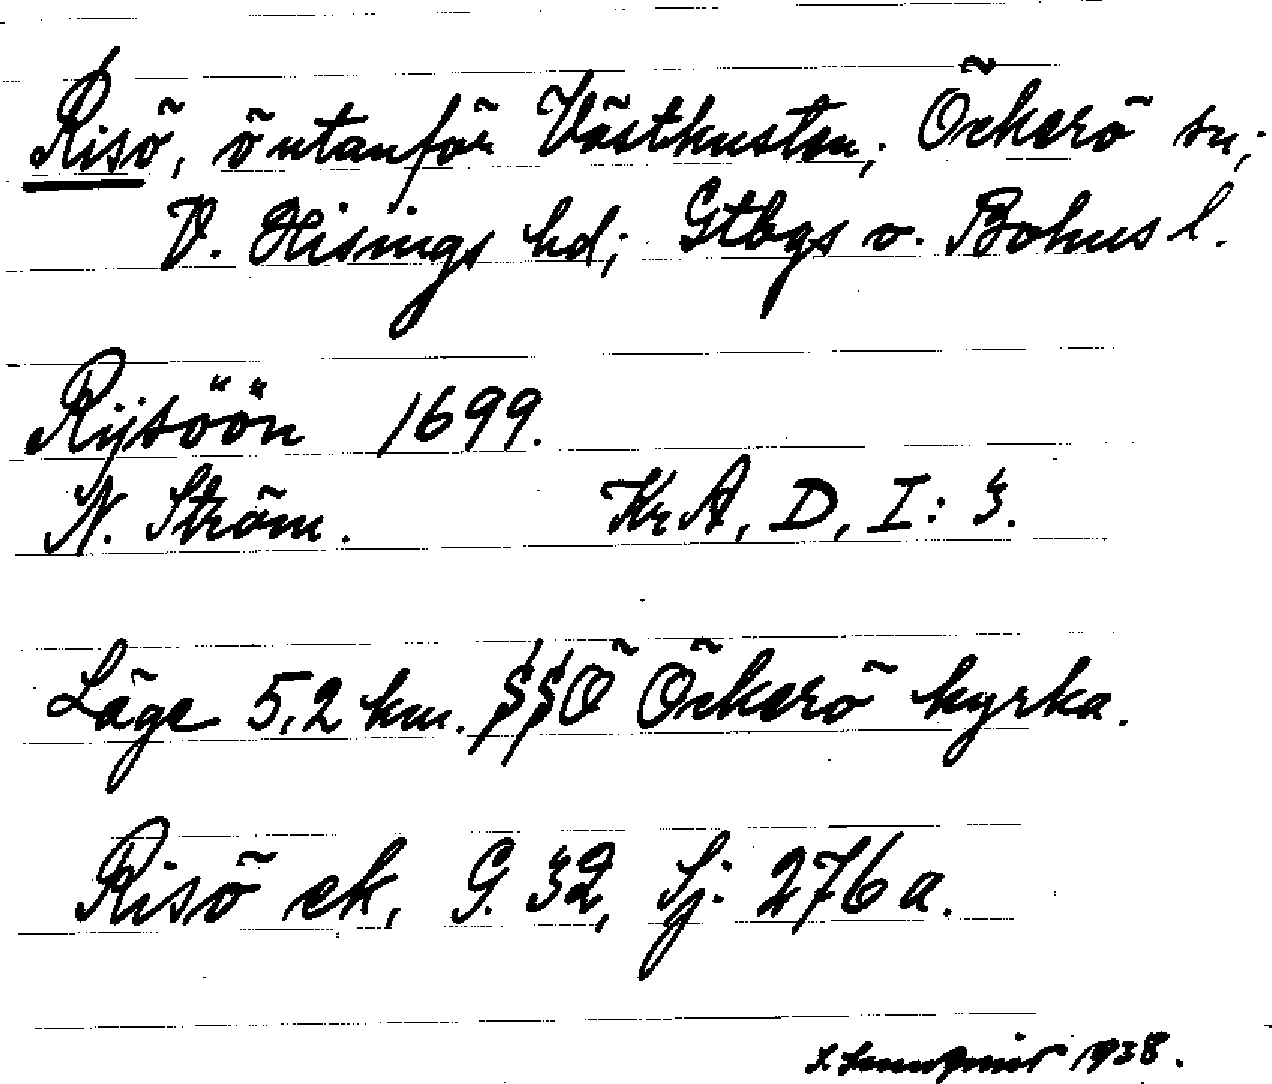 Risö, ö utanför Västkusten; Öckerö sn;
V. Hisings hd; Gtbgs o. Bohus l.
Rijsöön 1699.
N. Ström. KrA, D, I: 3.
Läge 5,2 km. SSÖ Öckerö kyrka.
Risö ek, G. 32, Sj: 276a.
1938.